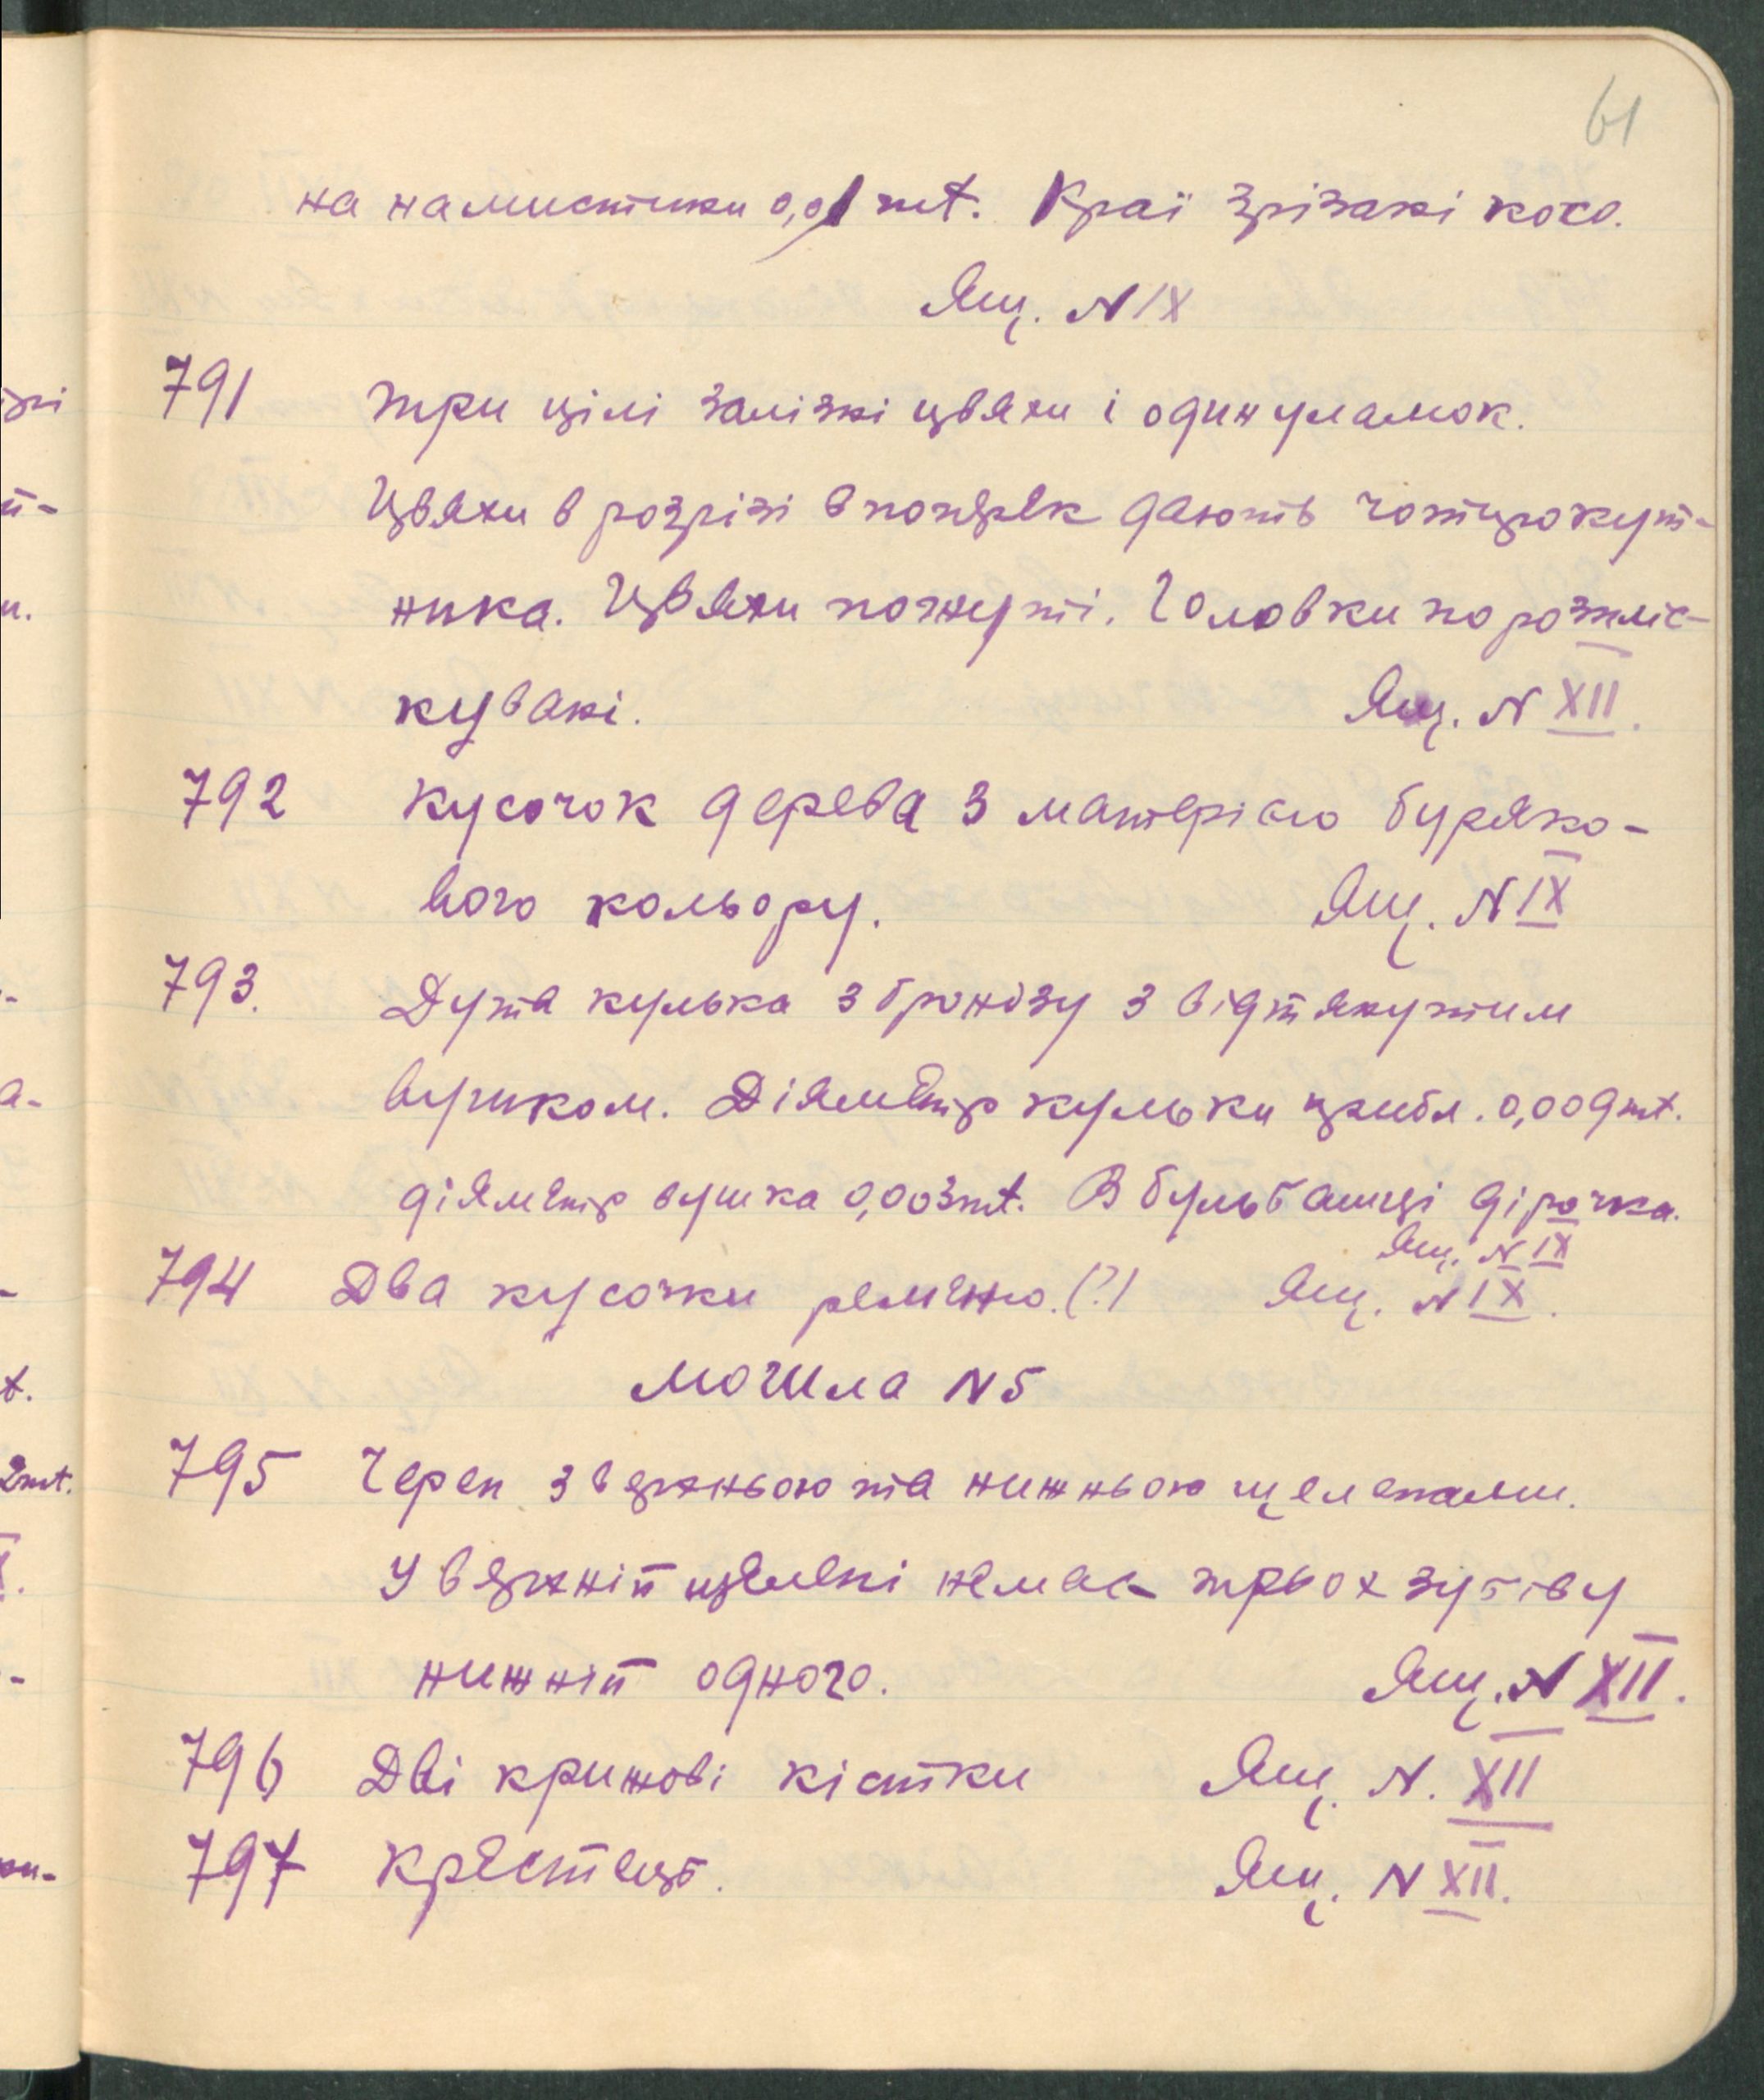 61
на намистики 0,01 mt. Краї зрізані косо.
Ящ. N IX
791 Три цілі залізні цвяхи і один уламок.
Цвяхи в розрізі впоперек дають чотирокут-
ника. Цвяхи погнуті. Головки порозпліс-
кувані. Ящ. N XII.
792 Кусочок дерева з матерією буряко-
вого кольору. Ящ. N IX
793. Дута кулька з бронзу з відтягнутим
вушком. Діяметр кульки прибл. 0,009 mt.
діяметр вушка 0,003 mt. В бульбашці дірочка.
Ящ. N IX
794 Два кусочки ременю. (?) Ящ. N IX.
Могила N 5
795 Череп з верхньою та нижньою щелепами.
У верхній щелепі немає трьох зубів у
нижній одного. Ящ. N XII.
796 Дві крижові кістки Ящ. N. XII
797 Крестець. Ящ. N XII.